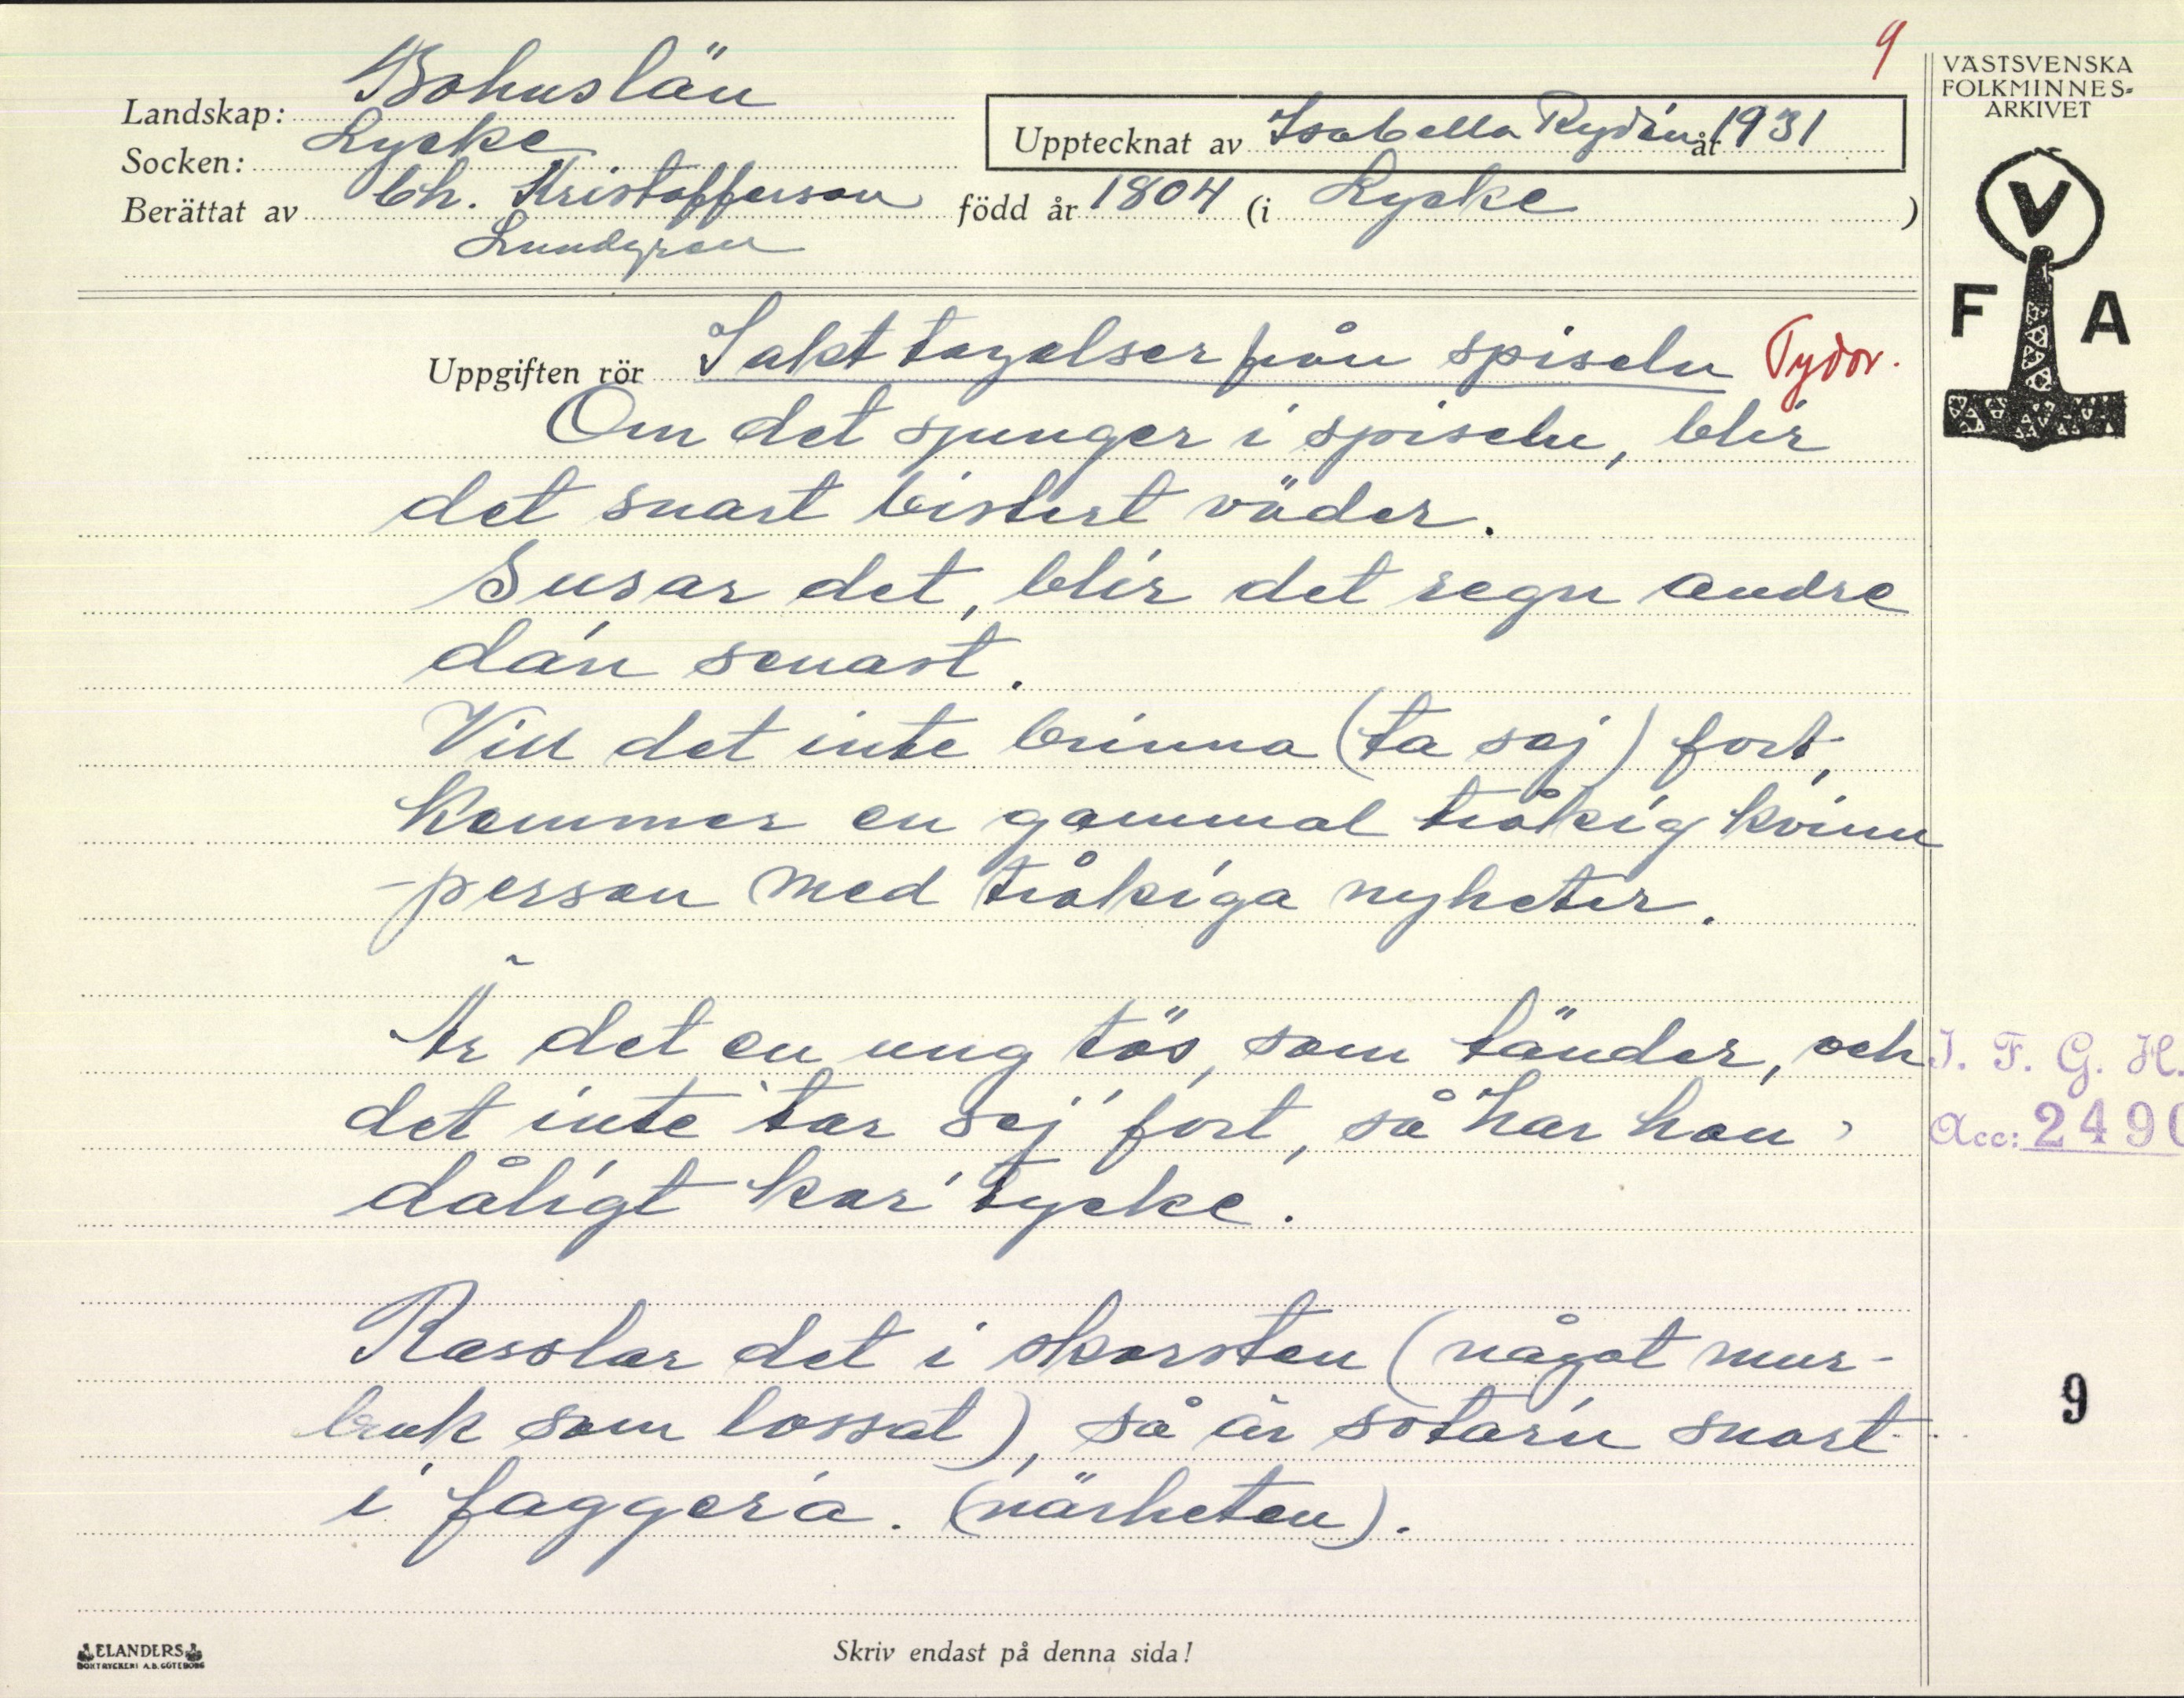 9
VÄSTSVENSKA
FOLKMINNES-
ARKIVET
Landskap: Bohuslän
Socken: Lycke
Upptecknat av Isabella Rydén år 1931
Berättat av Ch. Kristofferson född år 1804 (i Lycke)
Lundgren
V
F A
Uppgiften rör Iakttagelser från spiseln Tydor.
Om det sjunger i spiseln, blir
det snart bistert väder.
Susar det, blir det regn andre
dán senast.
Vill det inte brinna (ta sej) fort,
kommer en gammal tråkig kvinn
-person med tråkiga nyheter.
Är det en ung tös, som tänder, och
det inte 'tar sej' fort, så har hon
dåligt 'kar'tycke.
Rasslar det i skorsten (något mur-
bruk som lossat), så är sotar'n snart
i faggera. (närheten).
I. F. G. H.
Acc: 2490
9
ELANDERS
BOKTRYCKERI A.B. GÖTEBORG
Skriv endast på denna sida!